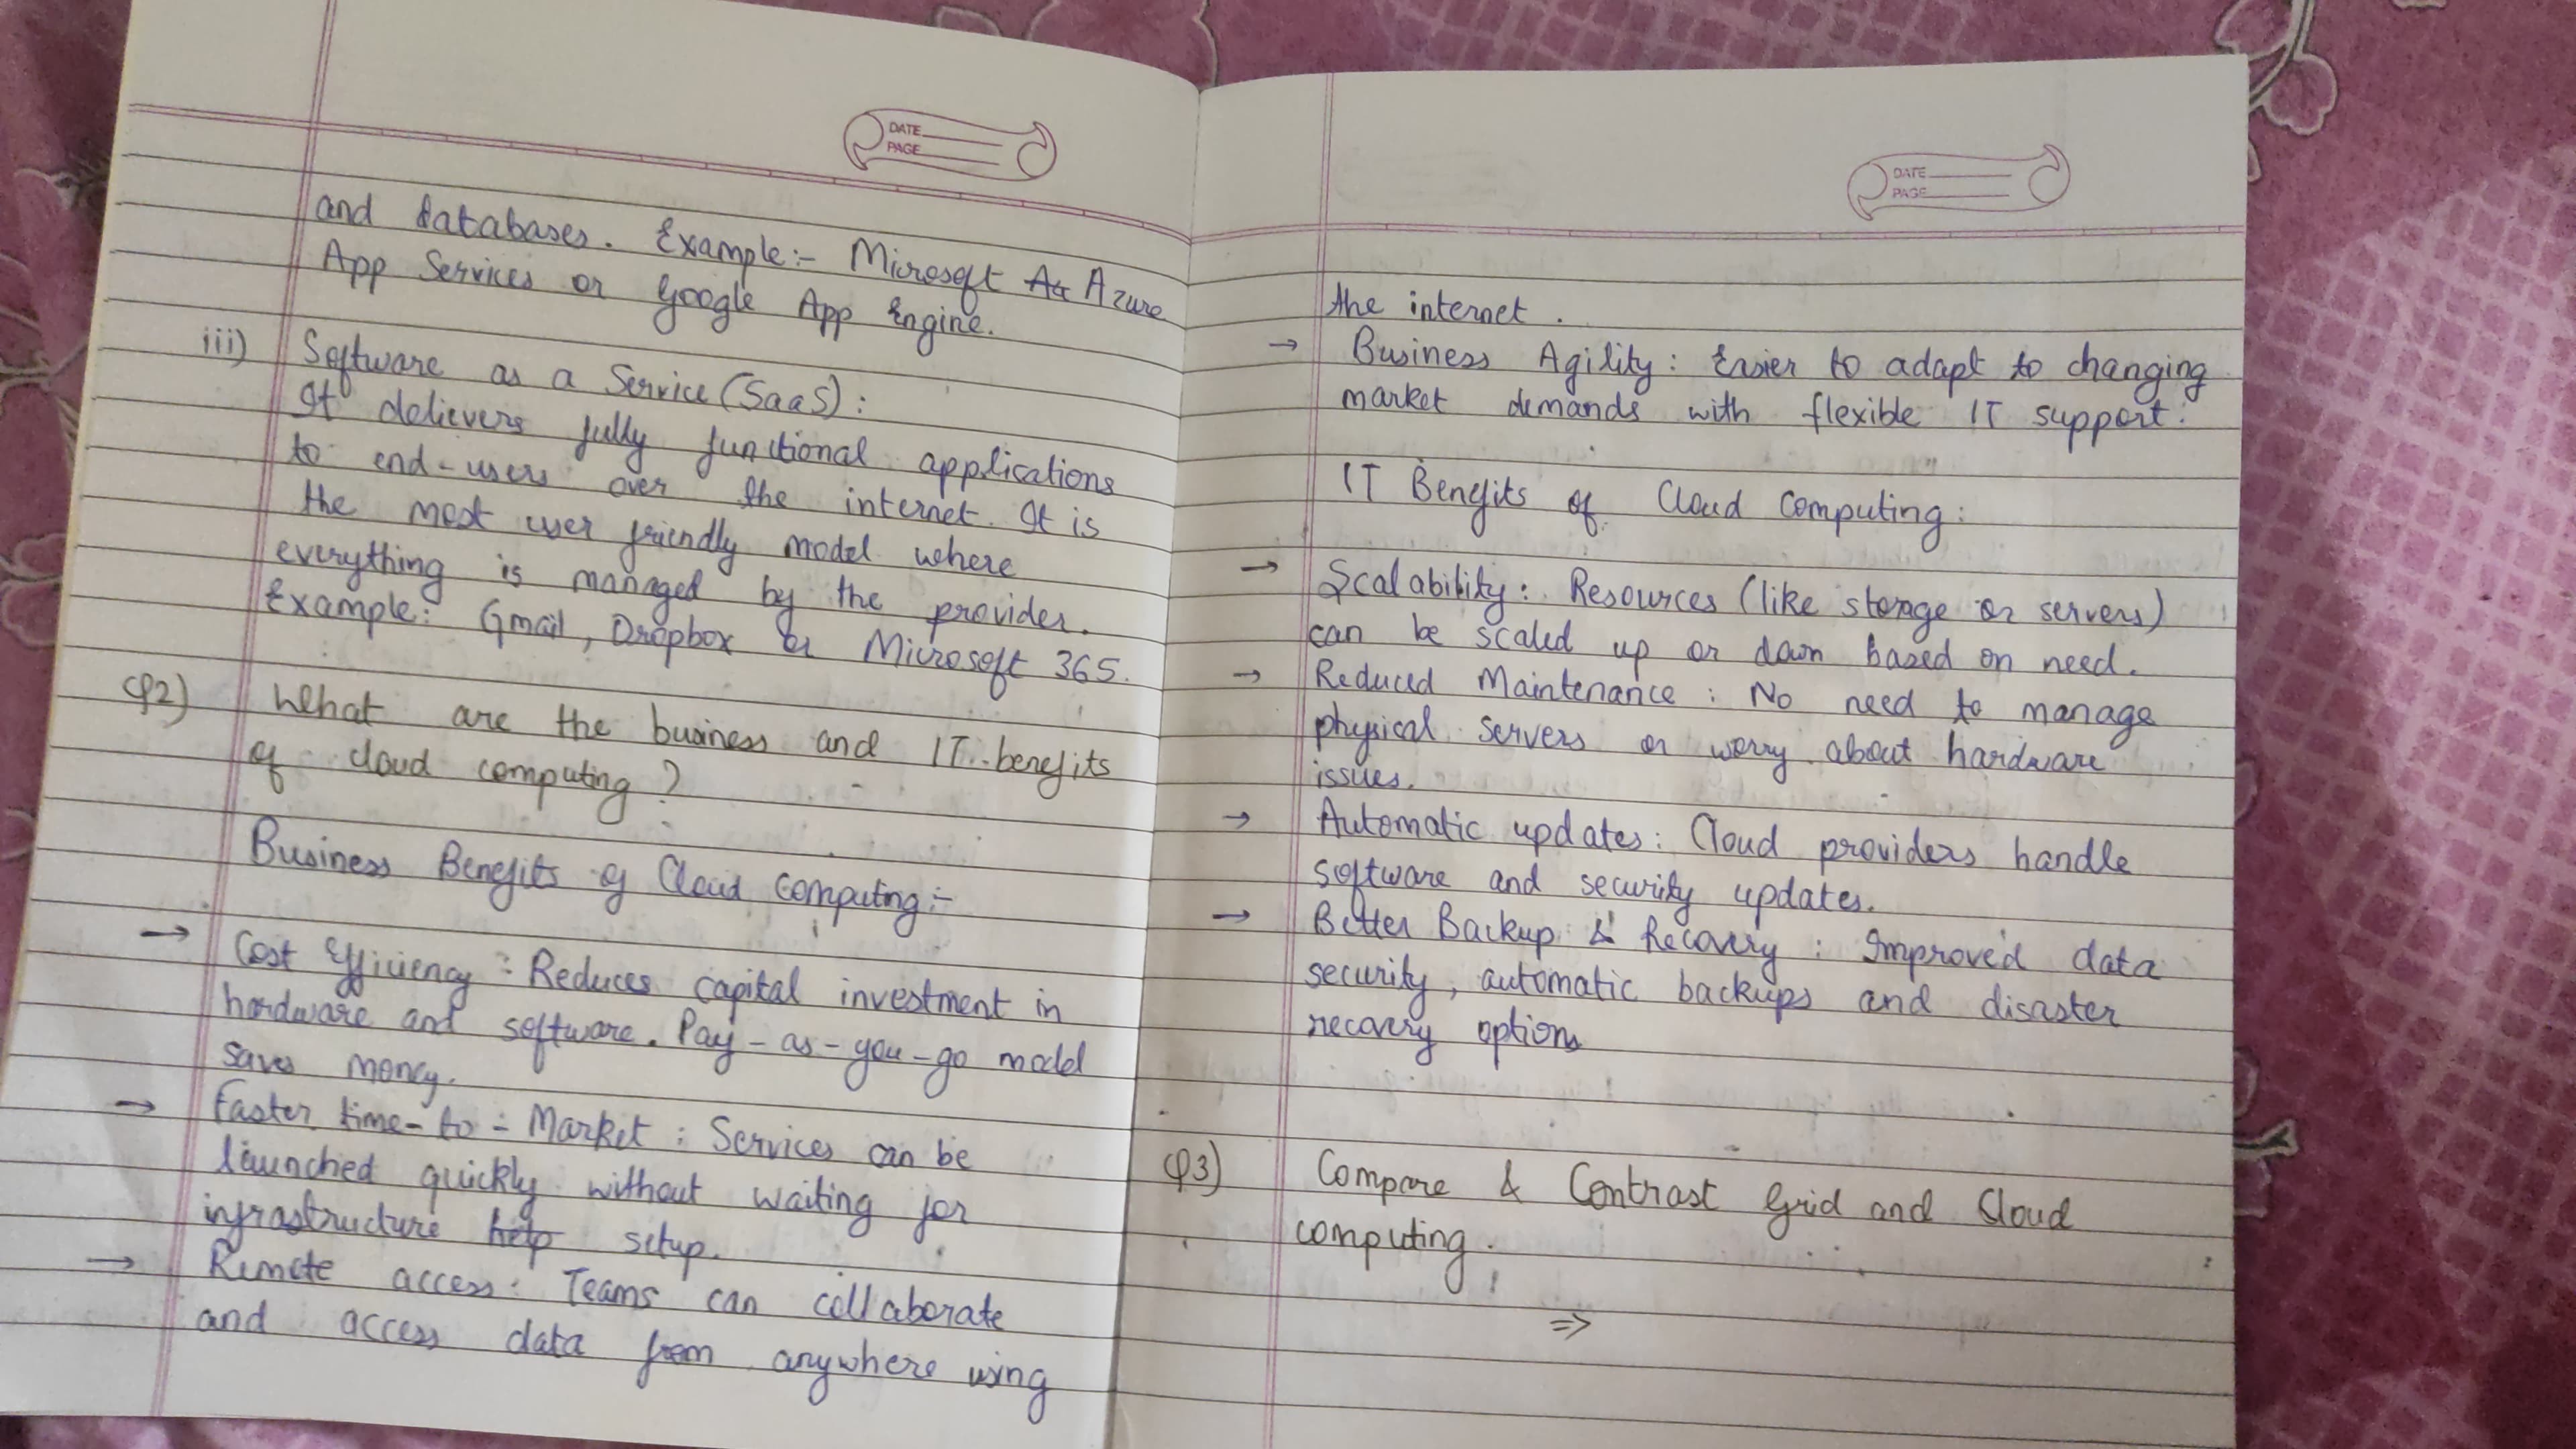 DATE
PAGE
and databases. Example:- Microsoft Az Azure
App Services or Google App Engine.
iii) Software as a Service (SaaS):
It delievers fully functional applications
to end-users over the internet. It is
the most user friendly model where
everything is managed by the provider.
Example: Gmail, Dropbox or Microsoft 365.
Q2) What are the business and IT benefits
of cloud computing?
Business Benefits of Cloud Computing:-
→ Cost Efficiency: Reduces capital investment in
hardware and software. Pay-as-you-go model
saves money.
→ Faster time-to-Market: Services can be
launched quickly without waiting for
infrastructure help setup.
→ Remote access: Teams can collaborate
and access data from anywhere using
DATE
PAGE
the internet.
→ Business Agility: Easier to adapt to changing
market demands with flexible IT support.
IT Benefits of Cloud Computing:
→ Scalability: Resources (like storage or servers)
can be scaled up or down based on need.
→ Reduced Maintenance: No need to manage
physical servers or worry about hardware
issues.
→ Automatic updates: Cloud providers handle
software and security updates.
→ Better Backup & Recovery: Improved data
security, automatic backups and disaster
recovery options
Q3) Compare & Contrast Grid and Cloud
computing.
⇒